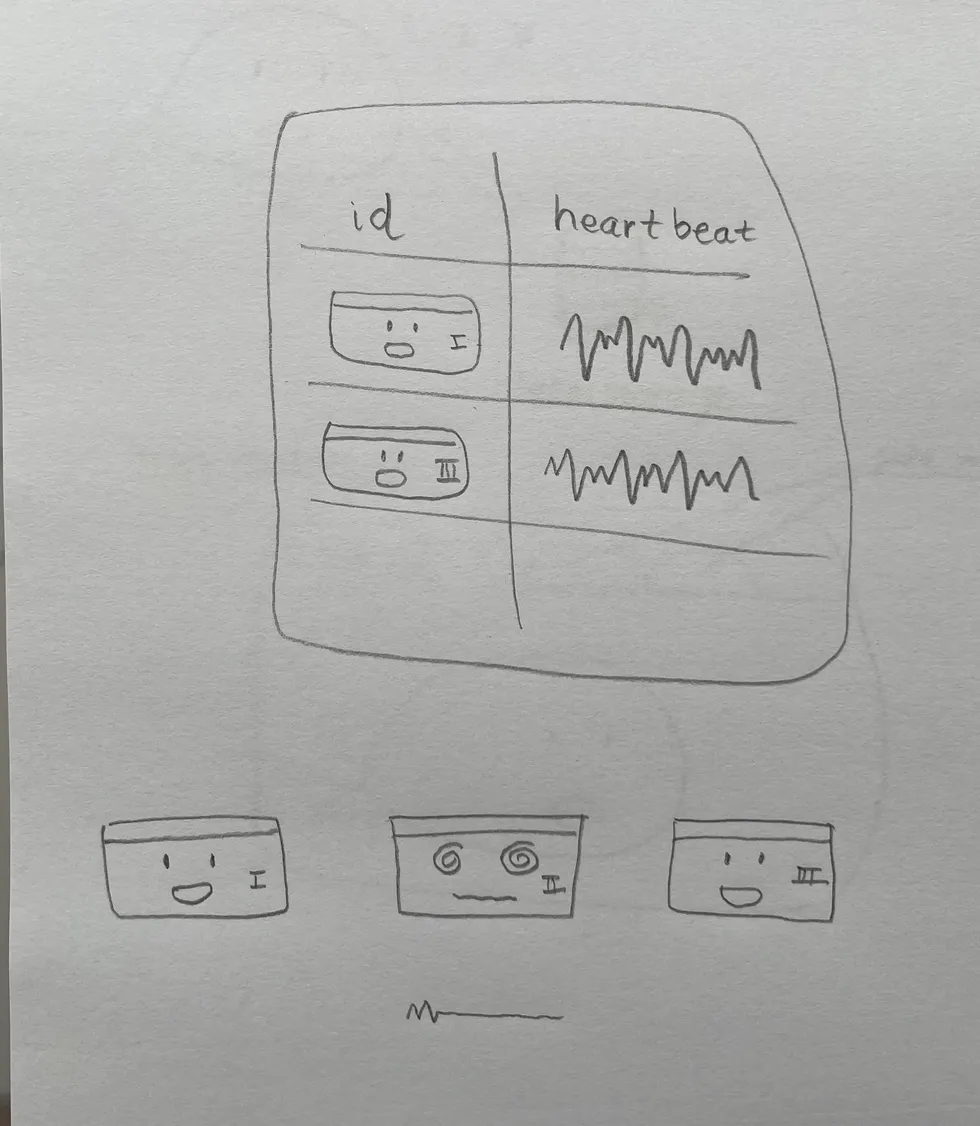 id heartbeat
I
III
I II III